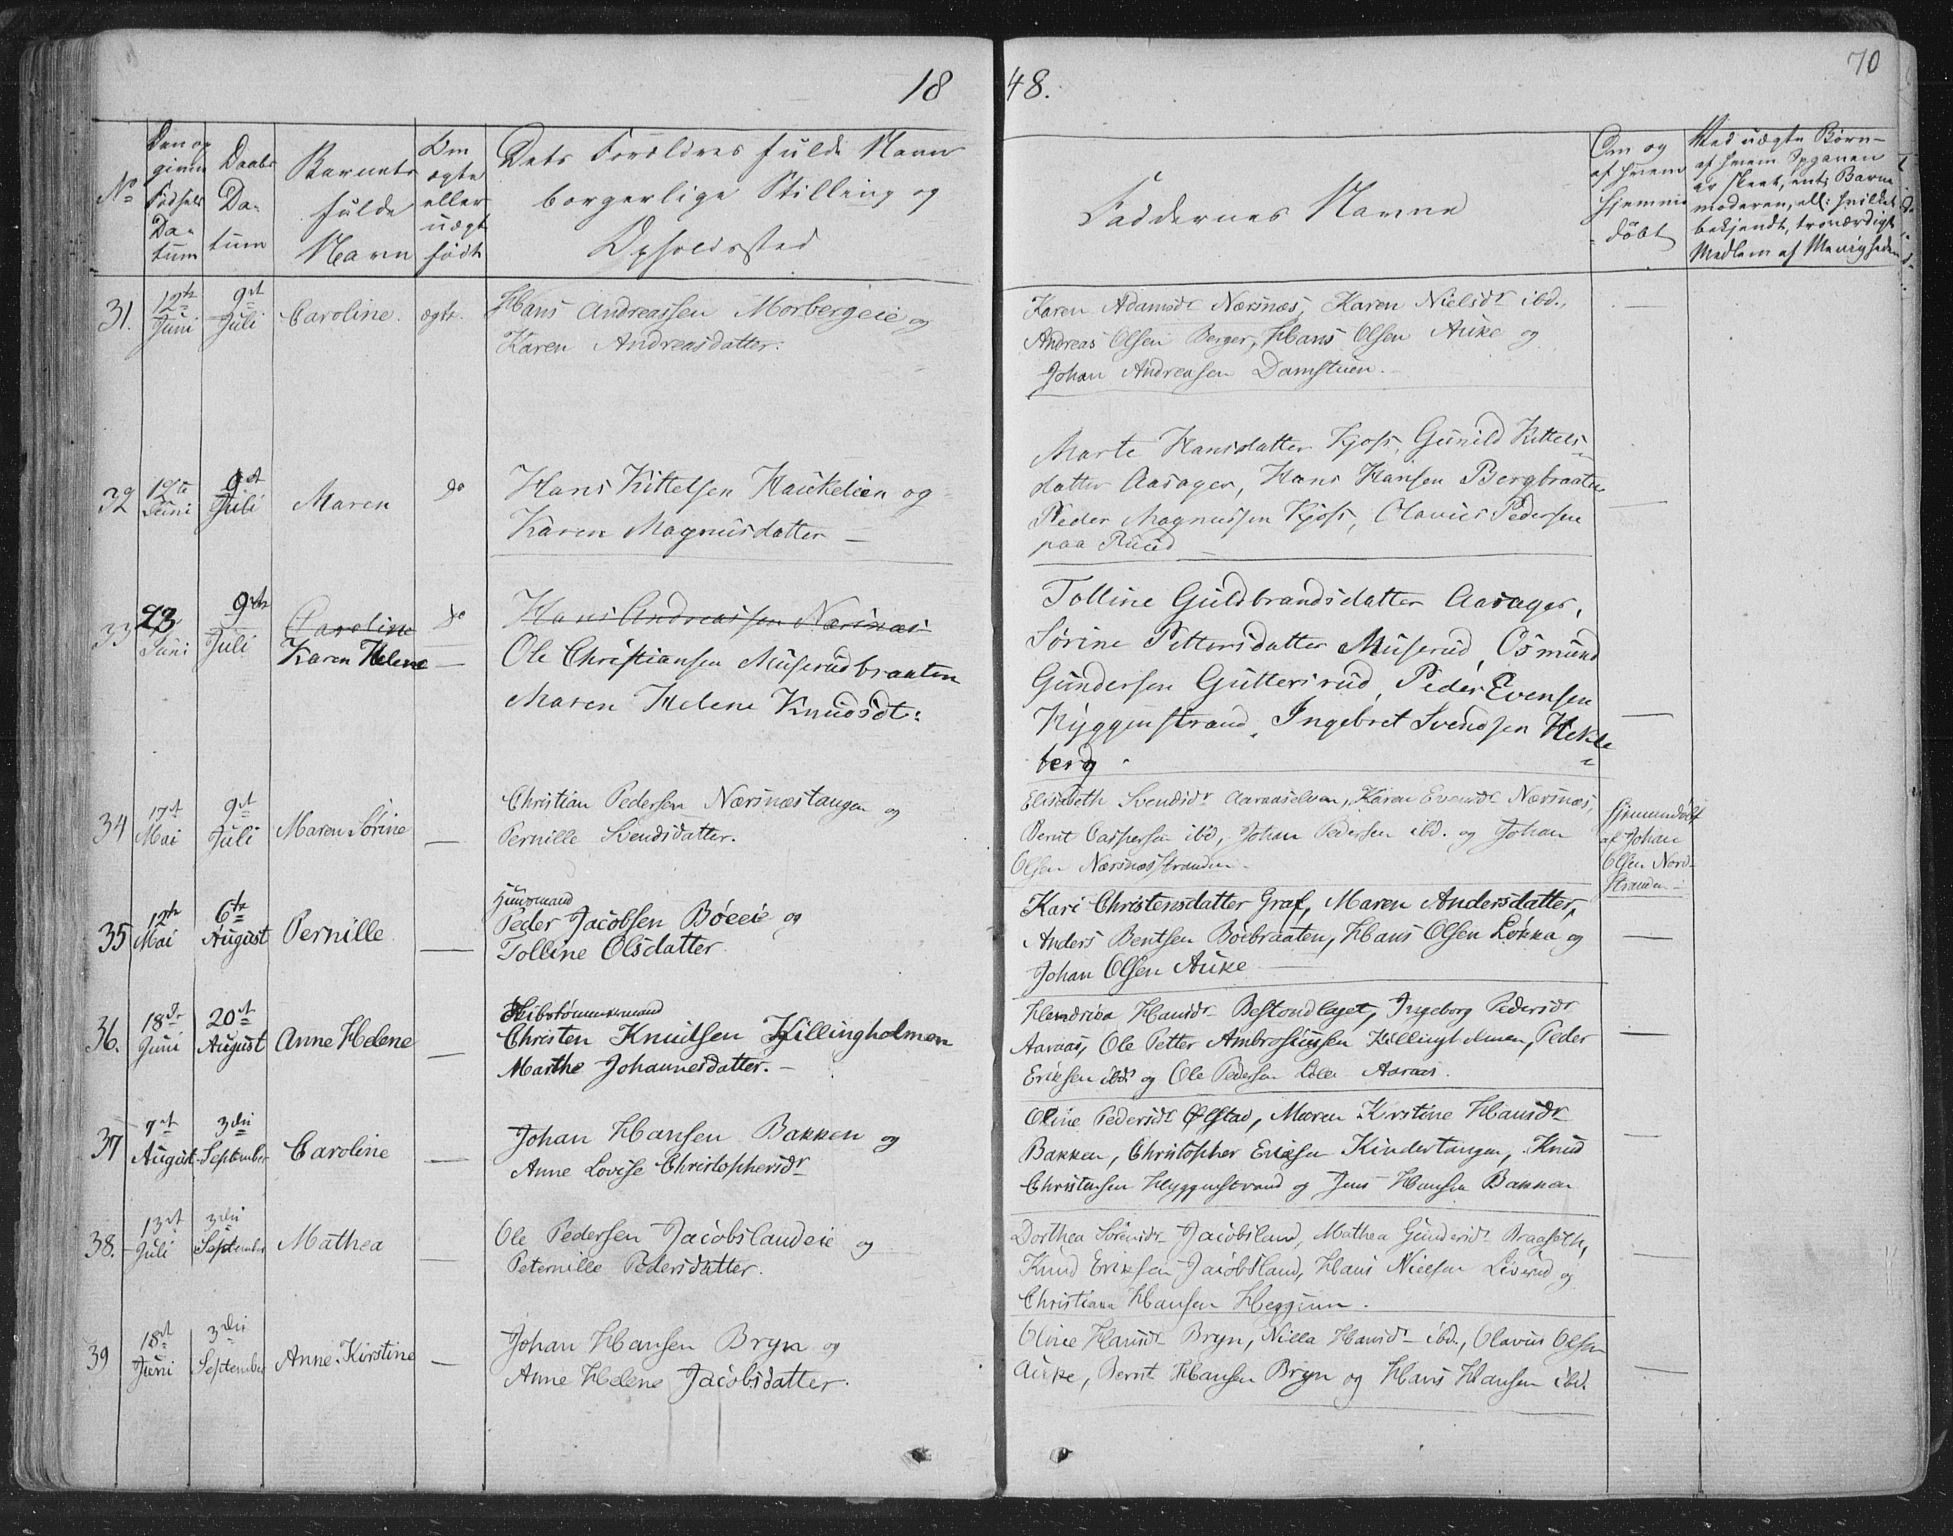 1848.
70
No
Den op
given
Fødsels
Da-
tum
Daabs
Da-
tum
Barnets
fulde
Navn
Om
ægte
eller
uægte
født
Dets Forældres fulde Navn
borgerlige Stilling og
Opholdssted
Faddernes Navne
Om og
af hvem
hjemme
døbt
Ved uægte Børn-
af hvem Opgaven
er skeet, ent: Barne
moderen, ell: hvilket
bekjendt, troværdigt
Medlem af Menigheden
31. 12te Juni 9de Juli Caroline. ægte. Hans Andreassen Morbergeie og
Karen Andreasdatter.
Karen Adamsdr Nærsnæs, Karen Nielsdr ibd.,
Andreas Olsen Berger, Hans Olsen Auke og
Johan Andreasen Damstuen. -
32 12te Juni 9de Juli Maren do Hans Kittelsen Haukelien og
Karen Magnusdatter -
Marte Hansdatter Kjos, Gunild Kittels
datter Aasager, Hans Hansen Bergbraaten
Peder Magnussen Kjos, Olavus Pedersen
paa Ruud
33 23 Juni 9de Juli Caroline do Hans Andreassen Nærsnæs
Karen Helene - Ole Christiansen Muserudbraaten
Maren Helene Knudsdt:
Tolline Guldbrandsdatter Aasager,
Sørine Pettersdatter Muserud, Osmund
Gundersen Guttersrud, Peder Evensen
Hyggenstrand, Ingebret Svendsen Hekle
berg.
34 17de Mai 9de Juli Maren Sørine - Christian Pedersen Nærsnæstangen og
Pernille Svendsdatter.
Elisabeth Svendsdr Aaraaselven, Karen Evensdr Nærsnæs,
Bernt Caspersen ibd, Johan Pedersen ibd. og Johan
Olsen Nærsnæsstranden -
Hjemmedøbt
af Johan
Olsen Nord-
stranden -
35 12te Mai 6te August Pernille - Huusmand
Peder Jacobsen Bøeeie og
Tolline Olsdatter
Kari Christensdatter Graf, Maren Andersdatter,
Anders Bentsen Boebraaten, Hans Olsen Løkka og
Johan Olsen Auke -
36. 18de Juni 20de August Anne Helene - Skibstømmermand
Christen Knudsen Killingholmen
Marthe Johannesdatter. -
Hendrica Hansdr Bestondlaget, Ingeborg Pedersdr
Aaraas, Ole Petter Ambrosiussen Killingholmen, Peder
Eriksen ibd. og Ole Pedersen Lille Aaraas.
37 7de August 3die September Caroline - Johan Hansen Bakken og
Anne Lovise Christophersdr
Oline Pedersdr Ølstad, Maren Kirstine Hansdr
Bakken, Christopher Eriksen Kindertangen, Knud
Christensen Hyggenstrand og Jens Hansen Bakken
38. 13de Juli 3die September Mathea - Ole Pedersen Jacobslandeie og
Peternille Pedersdatter.
Dorthea Sørensdr Jacobsland, Mathea Gundersdr Braaseth,
Knud Eriksen Jacobsland, Hans Nielsen Liverud og
Christian Hansen Heggum.
39 18de Juni 3die September Anne Kirstine - Johan Hansen Bryn og
Anne Helene Jacobsdatter.
Oline Hansdr Bryn, Nilla Hansdr ibd., Olavus Olsen
Auke, Bernt Hansen Bryn og Hans Hansen ibd.